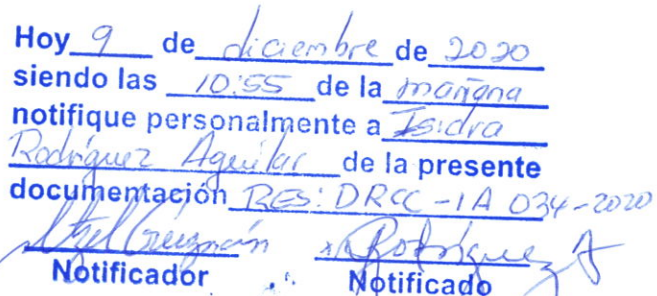 Hoy 9 de diciembre de 2020
siendo las 10:55 de la mañana
notifique personalmente a Isidra
Rodríguez Aguilar de la presente
documentación RES: DRCC-IA 034-2020
Itzel Guzmán Rodríguez A
Notificador Notificado